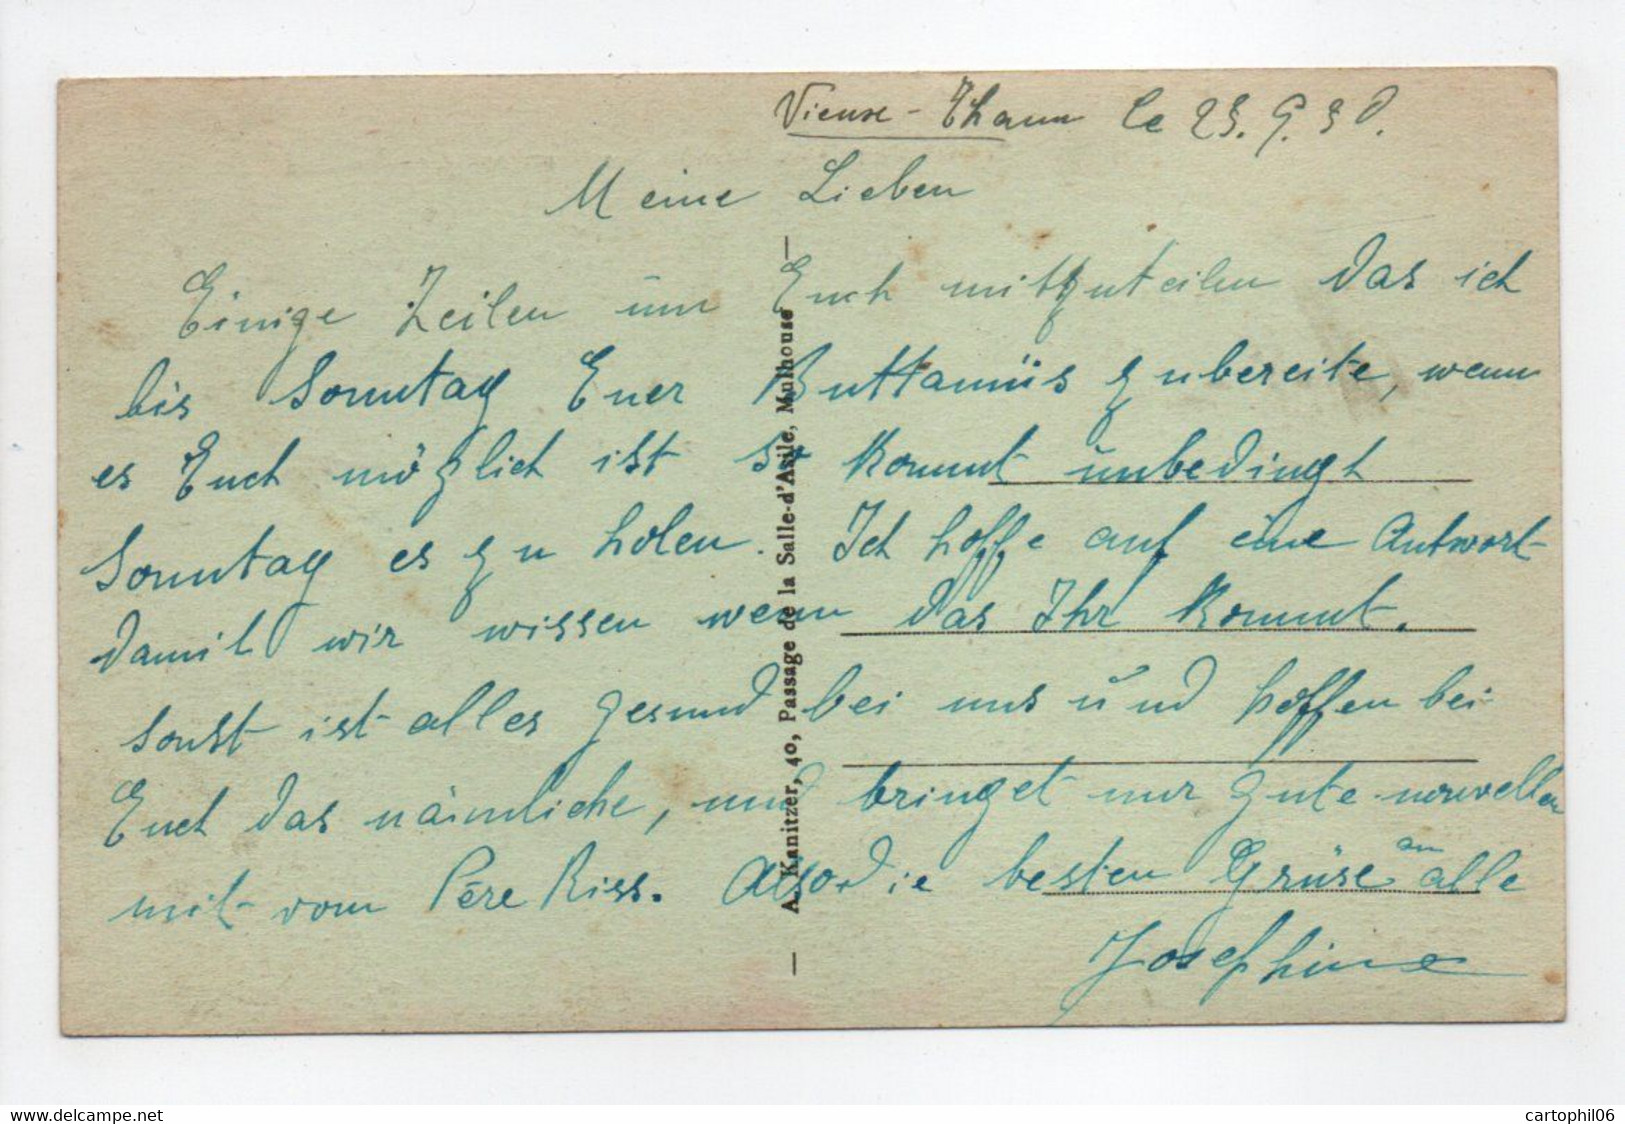 Vieux-Thann le 23.9.30.
Meine Lieben
Einige Zeilen um Euch mitzuteilen das ich
bis Sonntag Euer zubereite, wenn
es Euch möglich ist so kommt unbedingt
Sonntag es zu holen. Ich hoffe auf eine Antwort
damit wir wissen wenn das Ihr kommt.
sonst ist alles gesund bei uns und hoffen bei
Euch das nämliche, und bringet nur gute nouvellen
mit vom Père Riss. Also die besten Grüse an alle
Josephine
— A. Kanitzer, 40, Passage de la Salle-d'Asile, Mulhouse —
cartophil06
delcampe.net